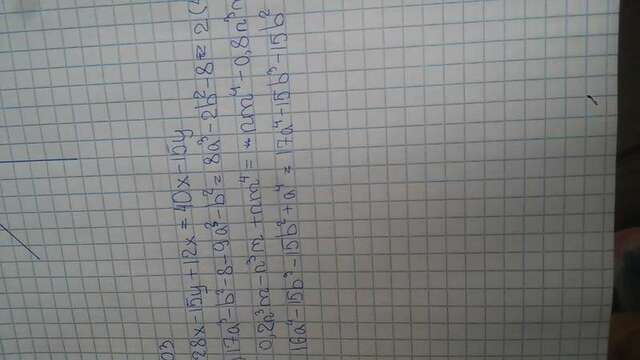 03
28x-15y+12x=40x-15y
)17a³-b²-8-9a³-b²=8a³-2b²-8=2(
0,2n³m-n³m+nm⁴=-nm⁴-0,8n³m
16a⁴-15b³-15b²+a⁴=17a⁴-15b³-15b²